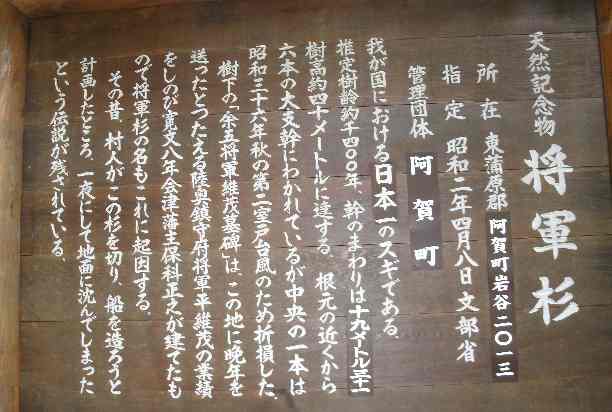 天然記念物 将軍杉
所在 東蒲原郡 阿賀町岩谷二〇一三
指定 昭和二年四月八日 文部省
管理団体 阿賀町
我が国における日本一のスギである。
推定樹齢約千四〇〇年、幹のまわりは十九メートル三十一
樹高約四十メートルに達する。根元の近くから
六本の大支幹にわかれているが中央の一本は
昭和三十六年秋の第二室戸台風のため折損した。
樹下の「余五将軍維茂墓碑」は、この地に晩年を
送ったとつたえる陸奥鎮守府将軍平維茂の業績
をしのび寛文八年会津藩主保科正之が建てたも
ので将軍杉の名もこれに起因する。
その昔、村人がこの杉を切り、船を造ろうと
計画したところ、一夜にして地面に沈んでしまった
という伝説が残されている。